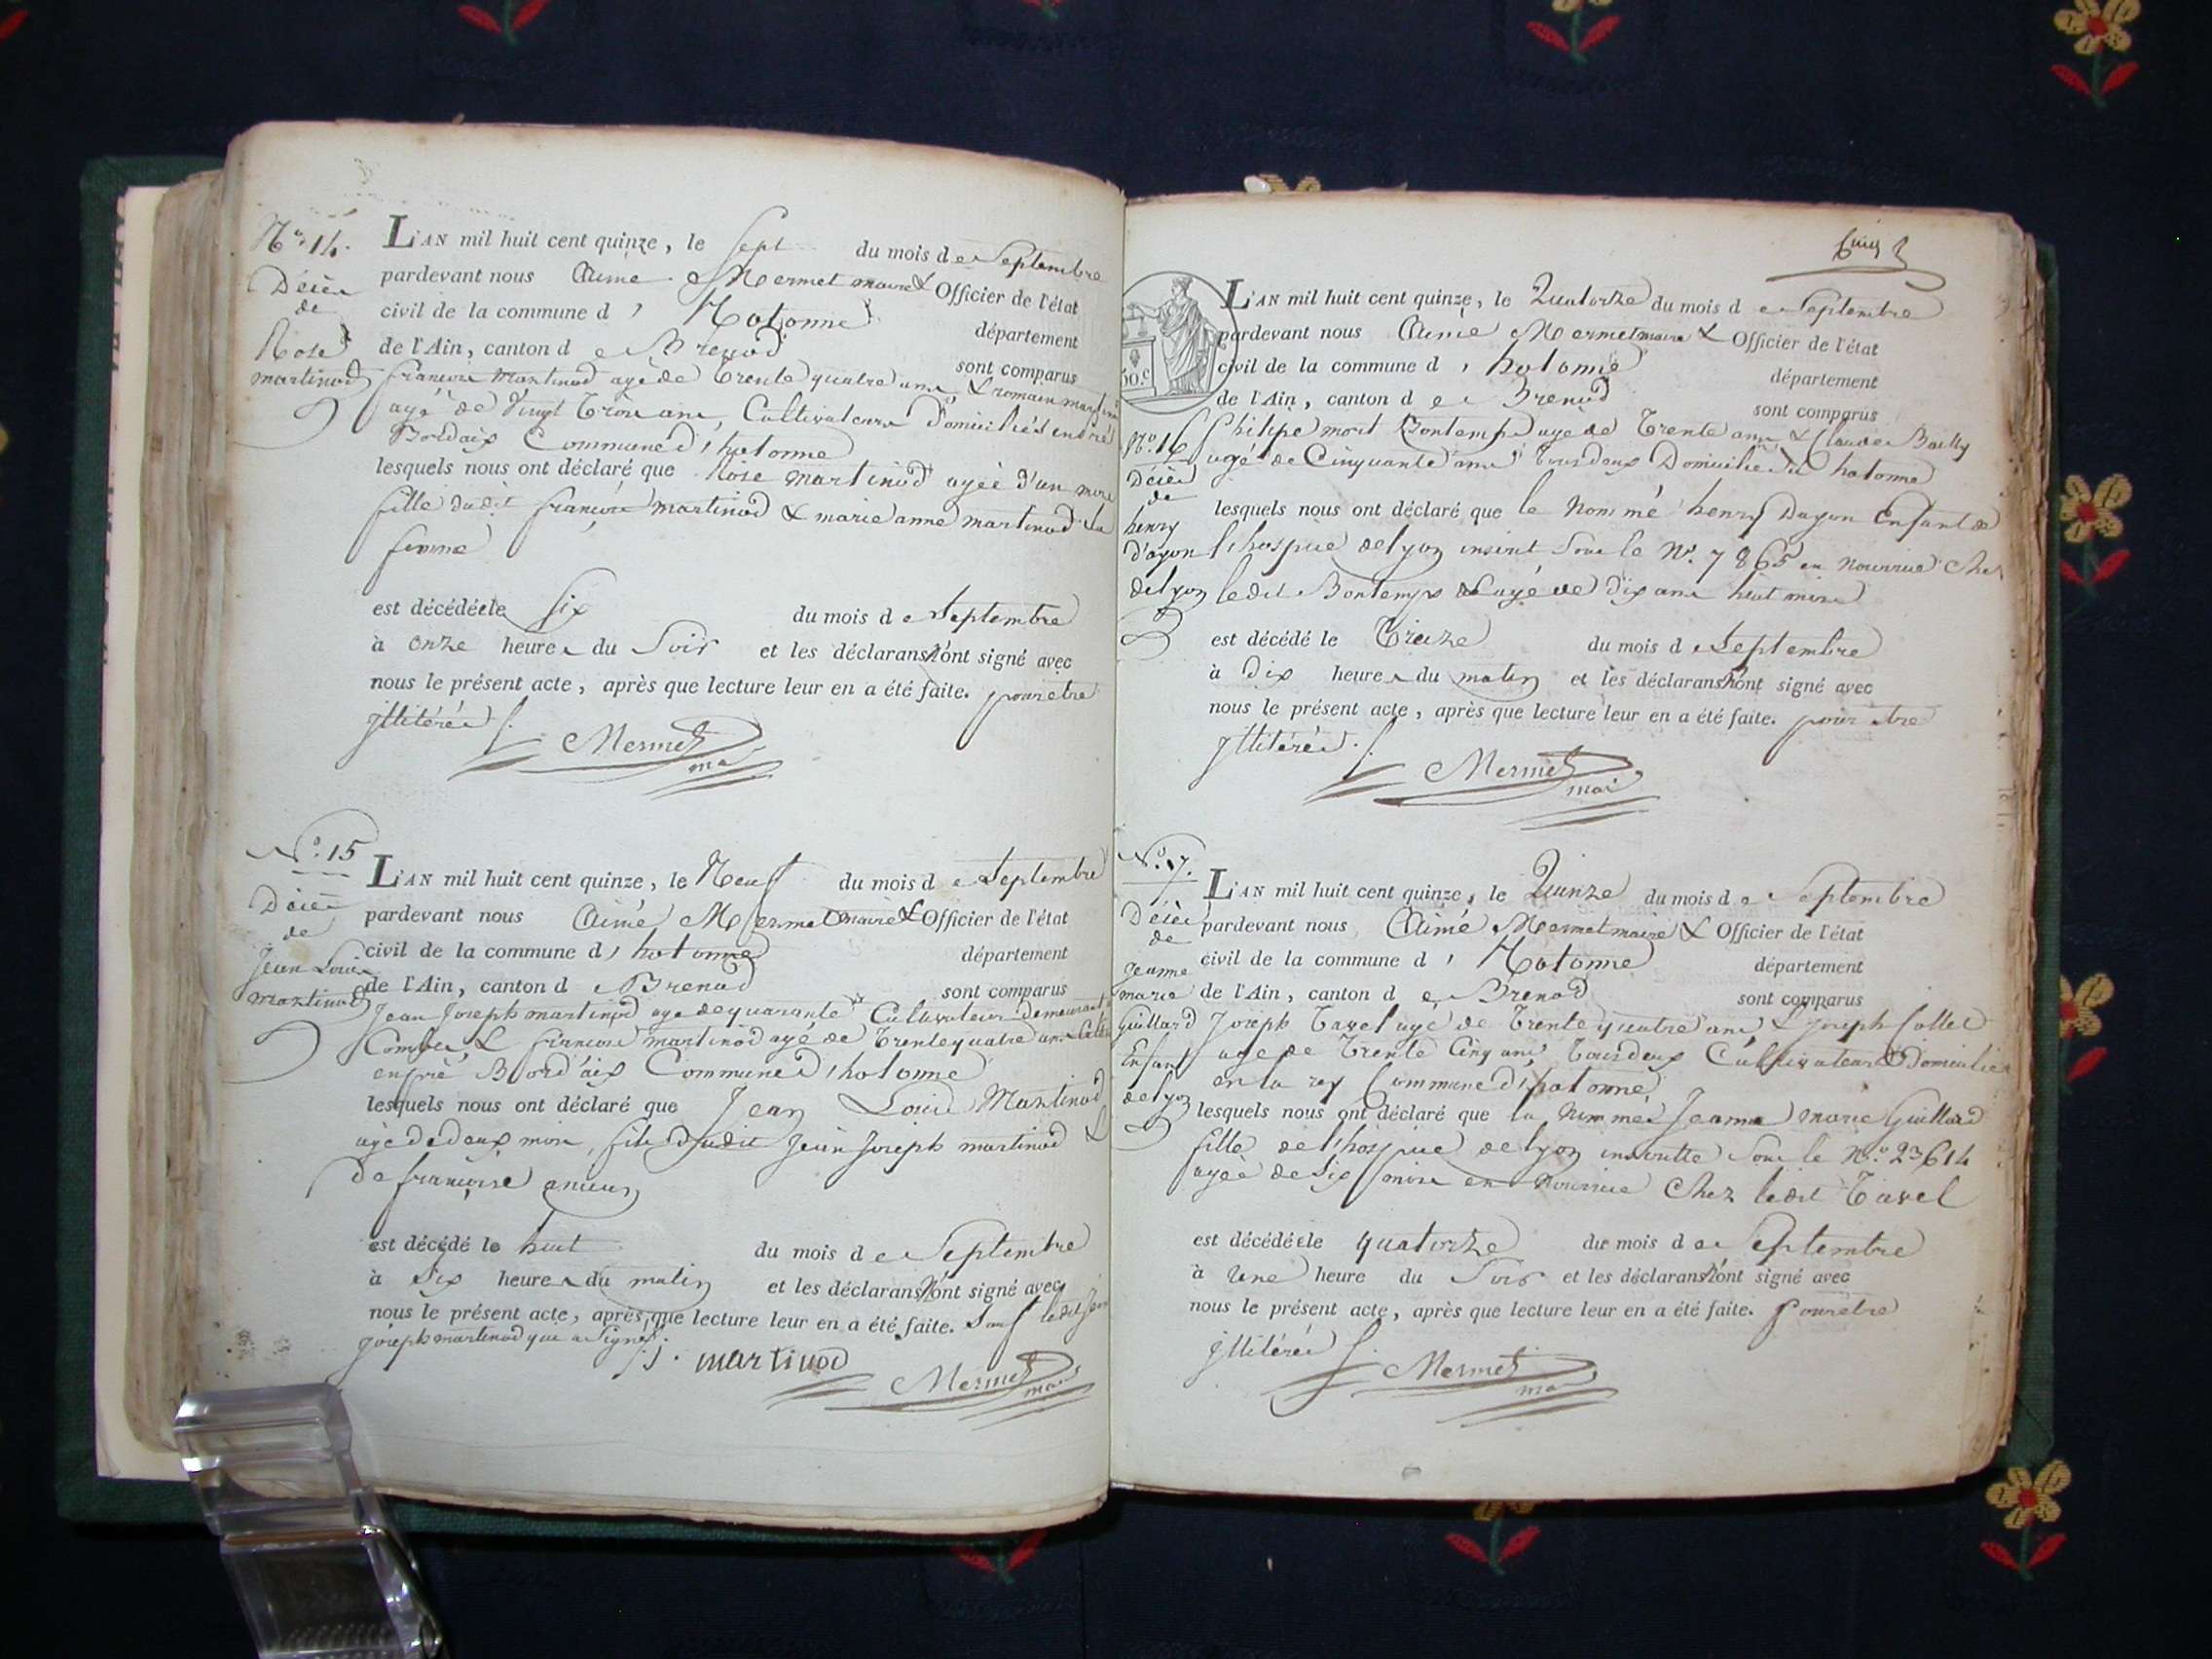 N.o 14.
Décès
de
Rose
martinod
L'AN mil huit cent quinze, le Sept du mois de Septembre
pardevant nous Aimé Mermet maire & Officier de l'état
civil de la commune d' Hotonne département
de l'Ain, canton de Brenod sont comparus
françois Martinod agé de Trente quatre ans & romain martinod
agé de Vingt Trois ans, Cultivateurs Domiciliés en pré
Bordaix Commune d'hotonne
lesquels nous ont déclaré que Rose martinod agée d'un mois
fille dudit françois martinod & marie anne martinod sa
femme
est décédée le Six du mois de Septembre
à onze heures du Soir et les déclarans n'ont signé avec
nous le présent acte, après que lecture leur en a été faite. pour etre
jllitérés
Mermet
N.o 15
Décès
de
Jean Louis
martinod
L'AN mil huit cent quinze, le Neuf du mois de Septembre
pardevant nous Aimé Mermet maire & Officier de l'état
civil de la commune d' hotonne département
de l'Ain, canton de Brenod sont comparus
Jean Joseph martinod age de quarante Cultivateur Demeurant
& françois martinod agé de Trente quatre ans
en pré Bord'aix Commune d'hotonne
lesquels nous ont déclaré que Jean Louis Martinod
agé de deux mois, fils dudit Jean Joseph martinod &
de françoise
est décédé le huit du mois de Septembre
à Six heures du matin et les déclarans n'ont signé avec
nous le présent acte, après que lecture leur en a été faite. Sauf ledit Jean
joseph martinod qui a Signé
J. martinod
Mermet
50.c
L'AN mil huit cent quinze, le Quatorze du mois de Septembre
pardevant nous Aimé Mermet maire & Officier de l'état
civil de la commune d' hotonne département
de l'Ain, canton de Brenod sont comparus
N.o 16
Décès
de
henry
d'ayon
de lyon
Philipe mort Bontemps agé de Trente ans & Claude Bailly
agé de Cinquante ans Tous deux Domiciliés à hotonne
lesquels nous ont déclaré que le Nommé henry Dayon Enfant de
l'hospice de lyon inscrit Sous le N.o 7865 en Nourrice Chez
ledit Bontemps agé de Dix ans huit mois
est décédé le Treize du mois de Septembre
à Dix heures du matin et les déclarans n'ont signé avec
nous le présent acte, après que lecture leur en a été faite. pour etre
jllitérés.
Mermet
N.o 17.
Décès
de
jeanne
marie
Guillard
Enfant
de lyon
L'AN mil huit cent quinze, le Quinze du mois de Septembre
pardevant nous Aimé Mermet maire & Officier de l'état
civil de la commune d' Hotonne département
de l'Ain, canton de Brenod sont comparus
Joseph Tavel agé de Trente quatre ans & Joseph Collet
age de Trente Cinq ans Tous deux Cultivateurs Domiciliés
en la rey Commune d'hotonne
lesquels nous ont déclaré que la Nommée Jeanne marie Guillard
fille de l'hospice de lyon inscritte Sous le N.o 23614
agée de Six mois en Nourrice Chez ledit Tavel
est décédée le quatorze du mois de Septembre
à Une heure du Soir et les déclarans n'ont signé avec
nous le présent acte, après que lecture leur en a été faite. Pour etre
jllitérés
Mermet